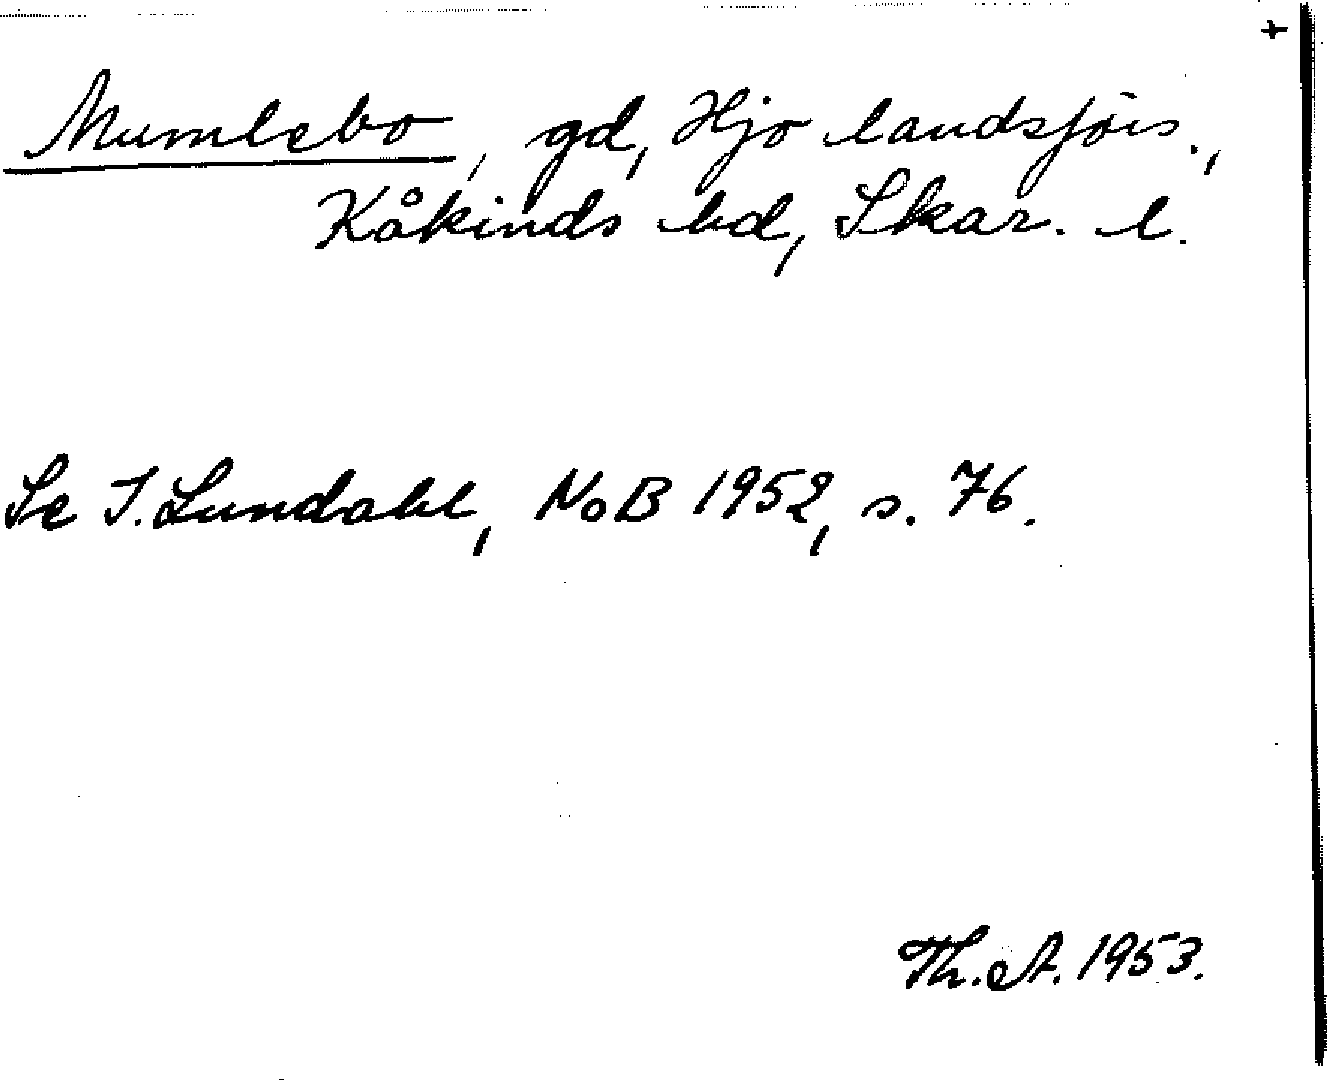 +
Mumlebo, gd, Hjo landsförs.,
Kåkinds hd, Skar. l.
Se I. Lundahl, NoB 1952, s. 76.
Th. A. 1953.